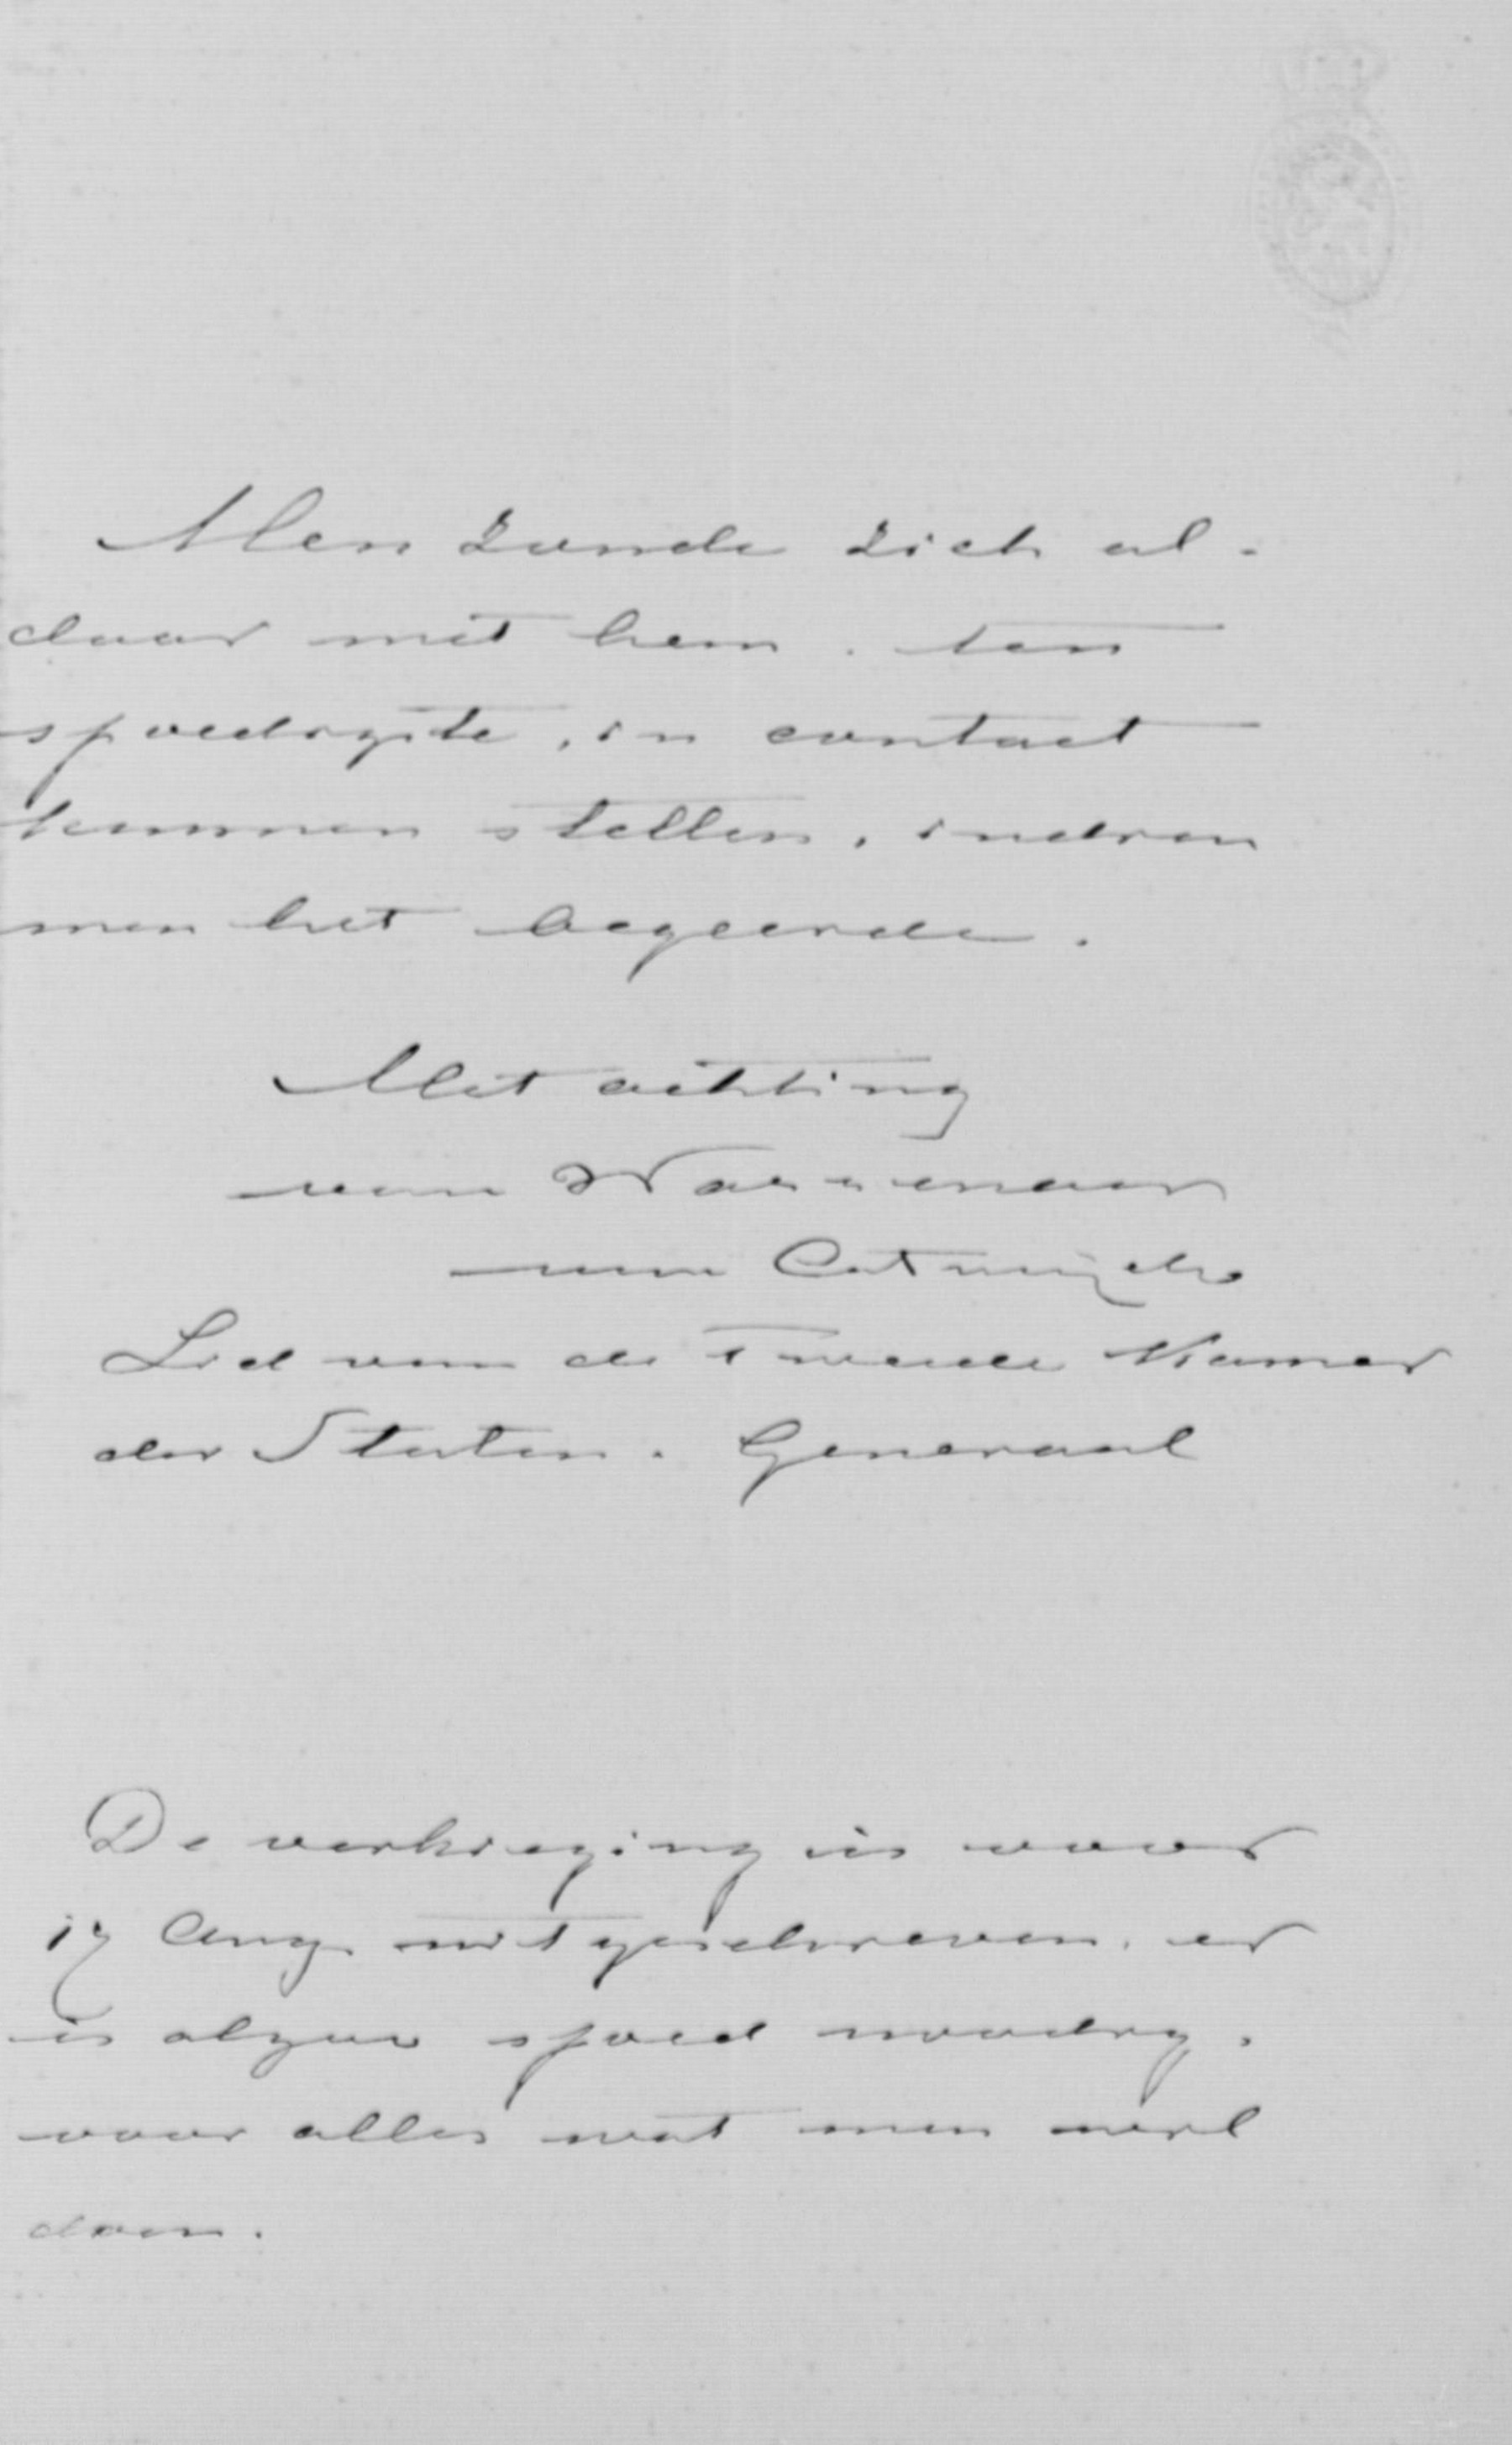 Men zoude zich al-
daar met hem, ten
spoedigste, in contact
kunnen stellen, indien
men het begeerde.
Met achting
van Wassenaer
van Catwijck
Lid van de Tweede Kamer
der Staten-Generaal
De verkiezing is voor
17 Aug. uitgeschreven, er
is alzoo spoed noodig,
voor alles wat men wil
doen.